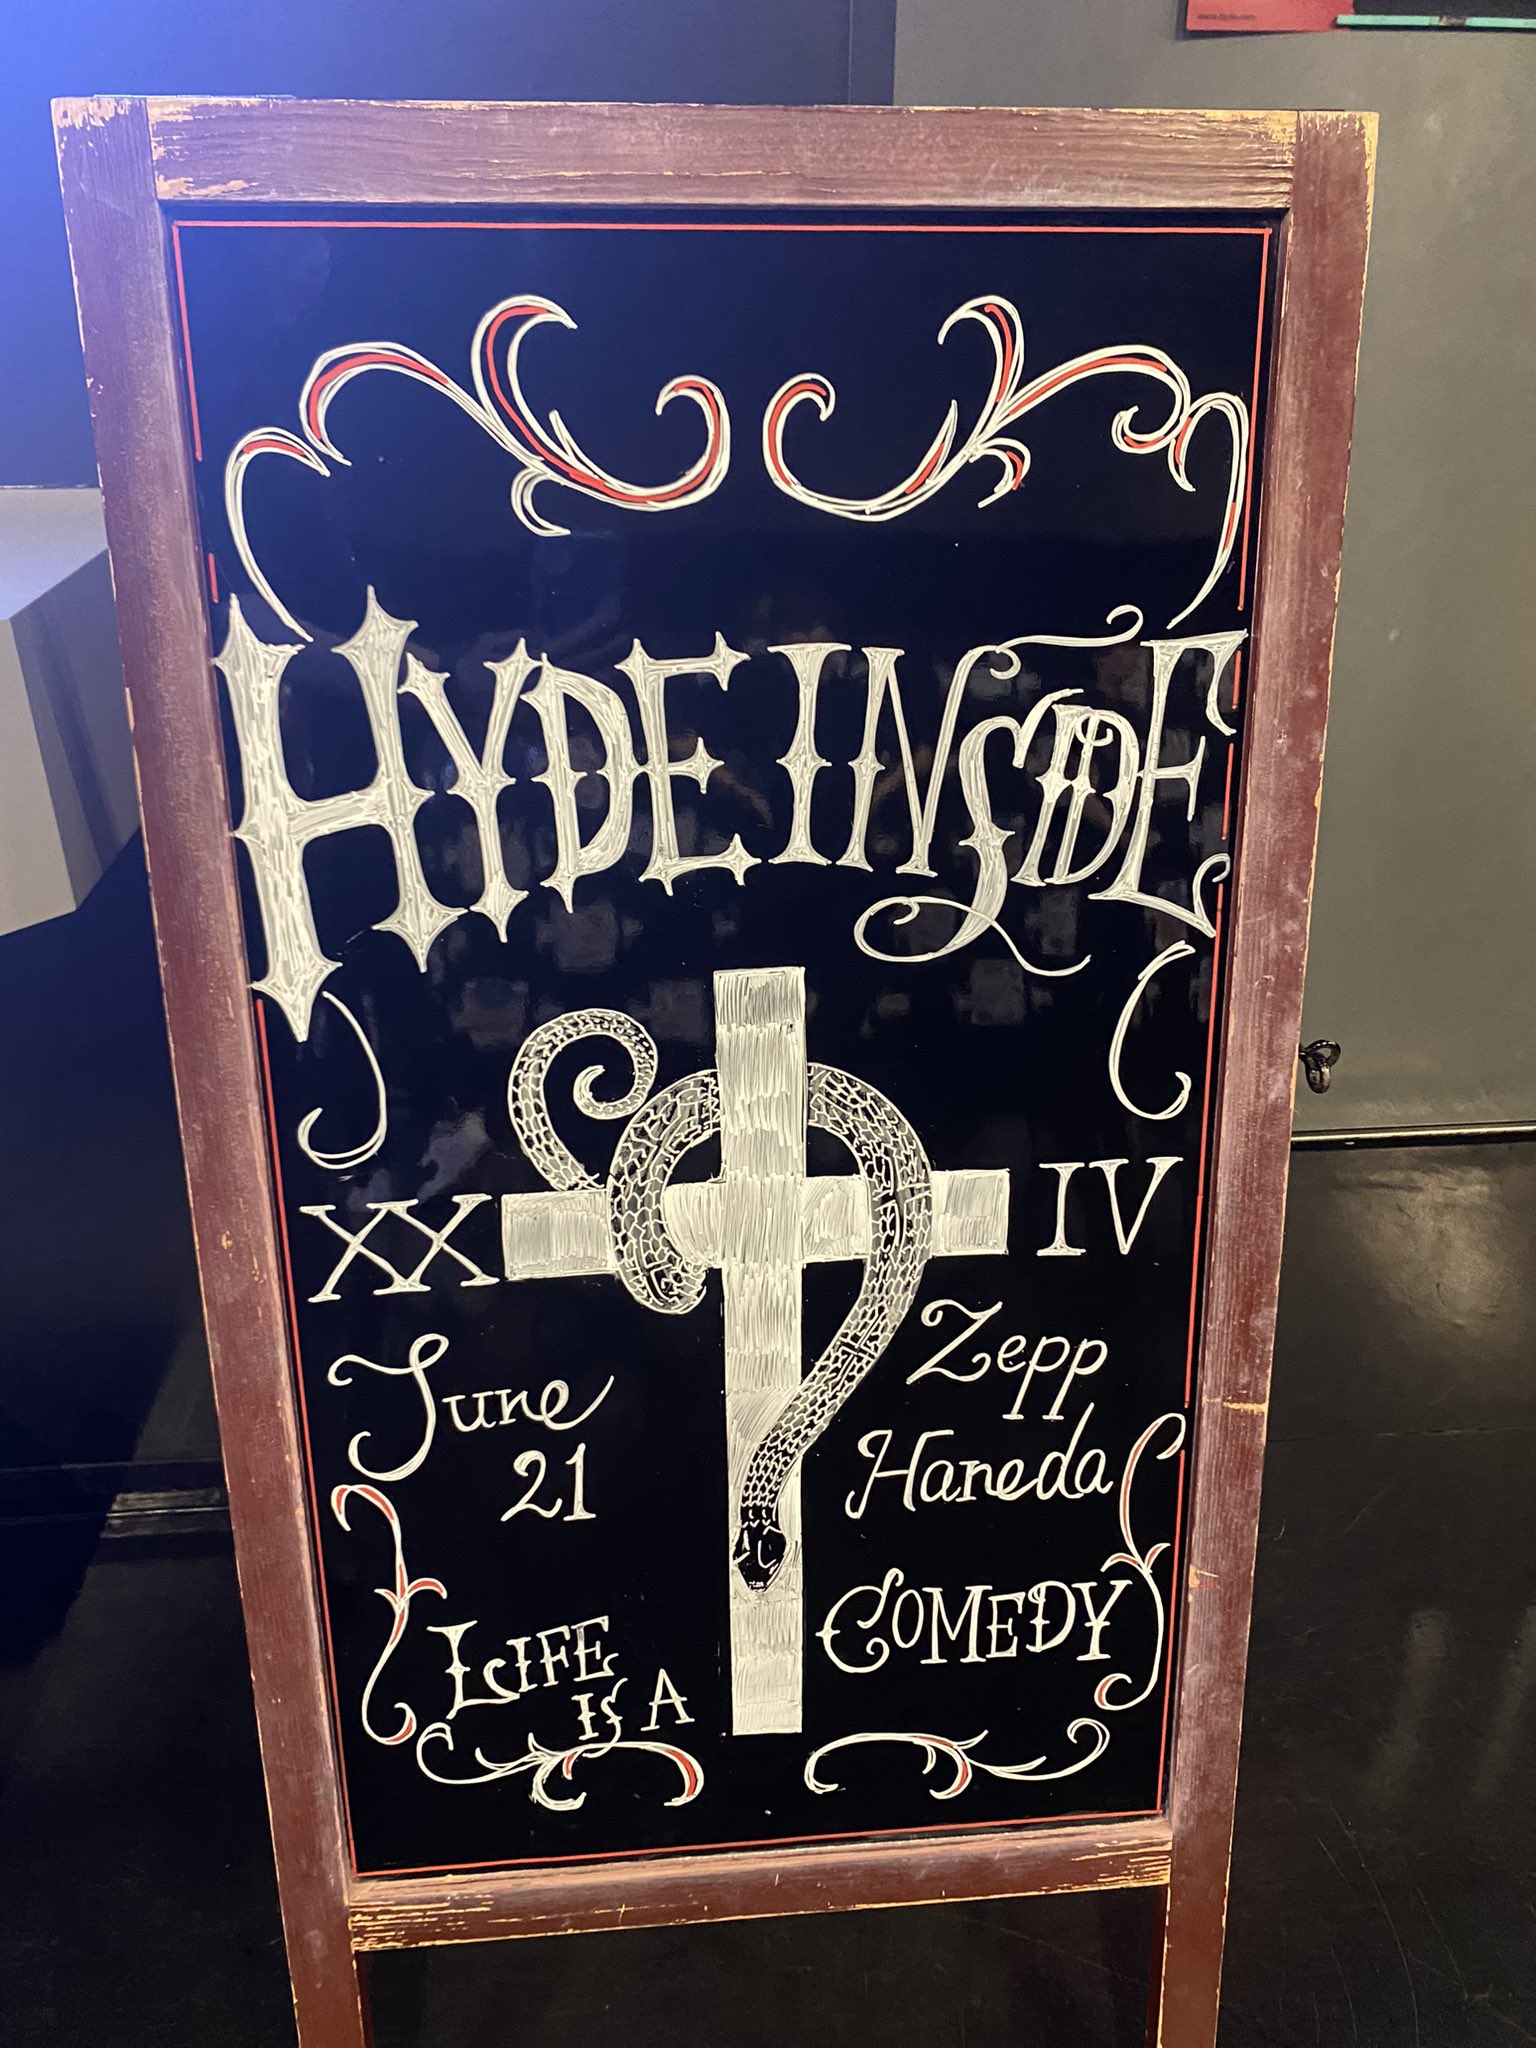 HYDE INSIDE
XX IV
June
21
Zepp
Haneda
LIFE
IS A
COMEDY